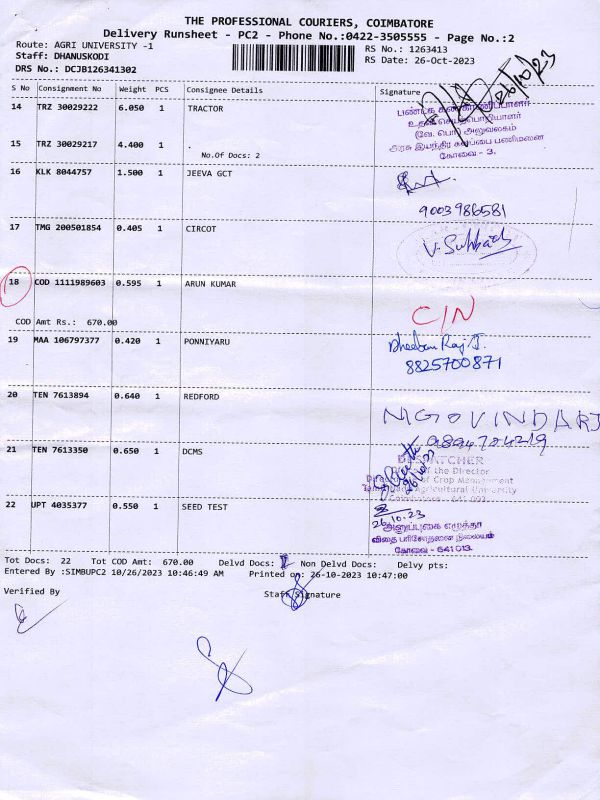 THE PROFESSIONAL COURIERS, COIMBATORE
Delivery Runsheet - PC2 - Phone No.:0422-3505555 - Page No.:2
Route: AGRI UNIVERSITY -1
RS No.: 1263413
Staff: DHANUSKODI
RS Date: 26-Oct-2023
DRS No.: DCJB126341302
26/10/23
S No Consignment No Weight PCS Consignee Details Signature
14 TRZ 30029222 6.050 1 TRACTOR
உதவி செயற்பொறியாளர்
(வே. பொ) அலுவலகம்
15 TRZ 30029217 4.400 1 .
கோவை - 3.
No.Of Docs: 2
16 KLK 8044757 1.500 1 JEEVA GCT
9003986581
17 TMG 200501854 0.405 1 CIRCOT
V. Subbaiah
18 COD 1111989603 0.595 1 ARUN KUMAR
C/N
COD Amt Rs.: 670.00
19 MAA 106797377 0.420 1 PONNIYARU
Dheeban Raj J.
8825700871
20 TEN 7613894 0.640 1 REDFORD
M GOVINDARJ
9894784219
21 TEN 7613350 0.650 1 DCMS
DESPATCHER
of the Director
Directorate of Crop Management
Tamil Nadu Agricultural University
22 UPT 4035377 0.550 1 SEED TEST
26.10.23
அனுப்புகை எழுத்தர்
விதை பரிசோதனை நிலையம்
கோவை - 641 013.
Tot Docs: 22 Tot COD Amt: 670.00 Delvd Docs: Non Delvd Docs: Delvy pts:
Entered By :SIMBUPC2 10/26/2023 10:46:49 AM Printed on: 26-10-2023 10:47:00
Verified By
Staff Signature